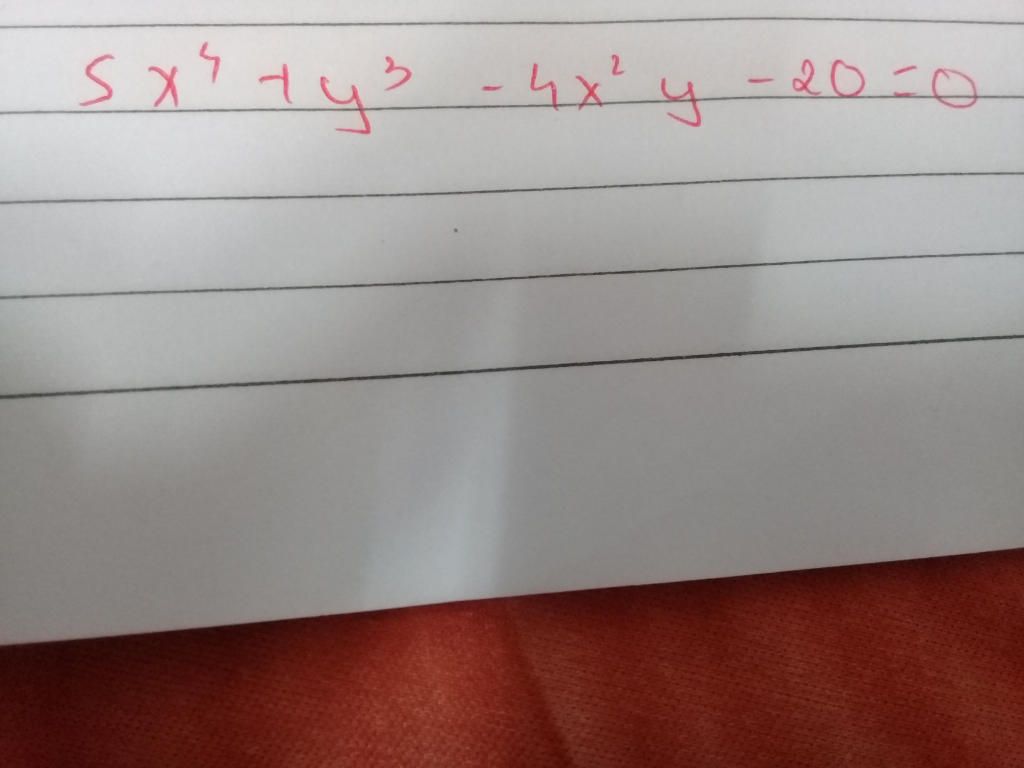 5x⁴ + y³ - 4x² y - 20 = 0